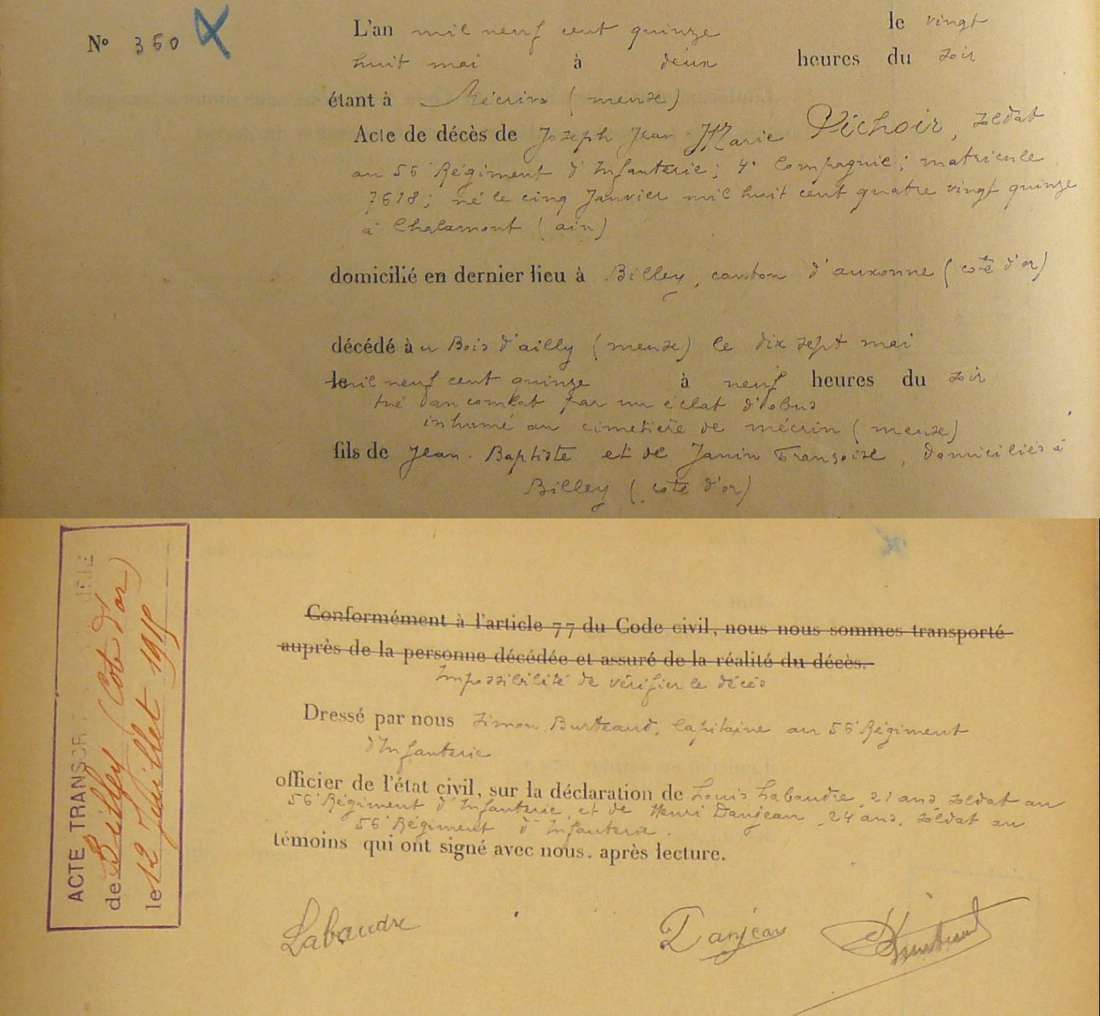 N° 360
L'an mil neuf cent quinze le vingt
huit mai à deux heures du soir
étant à Mécrin (meuse)
Acte de décès de Joseph Jean Marie Pichoir, soldat
au 56e Régiment d'Infanterie; 4e Compagnie; matricule
7618; né le cinq Janvier mil huit cent quatre vingt quinze
à Chalamont (ain)
domicilié en dernier lieu à Billey, canton d'auxonne (côte d'or)
décédé au Bois d'ailly (meuse) le dix sept mai
le mil neuf cent quinze à neuf heures du soir
tué au combat par un éclat d'obus
inhumé au cimetière de mécrin (meuse)
fils de Jean-Baptiste et de Janin Françoise, domiciliés à
Billey (côte d'or)
ACTE TRANSCRIT
de Billey (Côte d'or)
le 12 Juillet 1915
Conformément à l'article 77 du Code civil, nous nous sommes transporté
auprès de la personne décédée et assuré de la réalité du décès.
Impossibilité de vérifier le décés
Dressé par nous Simon Burteaud, Capitaine au 56e Régiment
d'Infanterie
officier de l'état civil, sur la déclaration de Louis Labaudre, 21 ans, soldat au
56e Régiment d'Infanterie, et de Henri Danjean, 24 ans, soldat au
56e Régiment d'Infanterie.
témoins qui ont signé avec nous. après lecture.
Labaudre Danjean